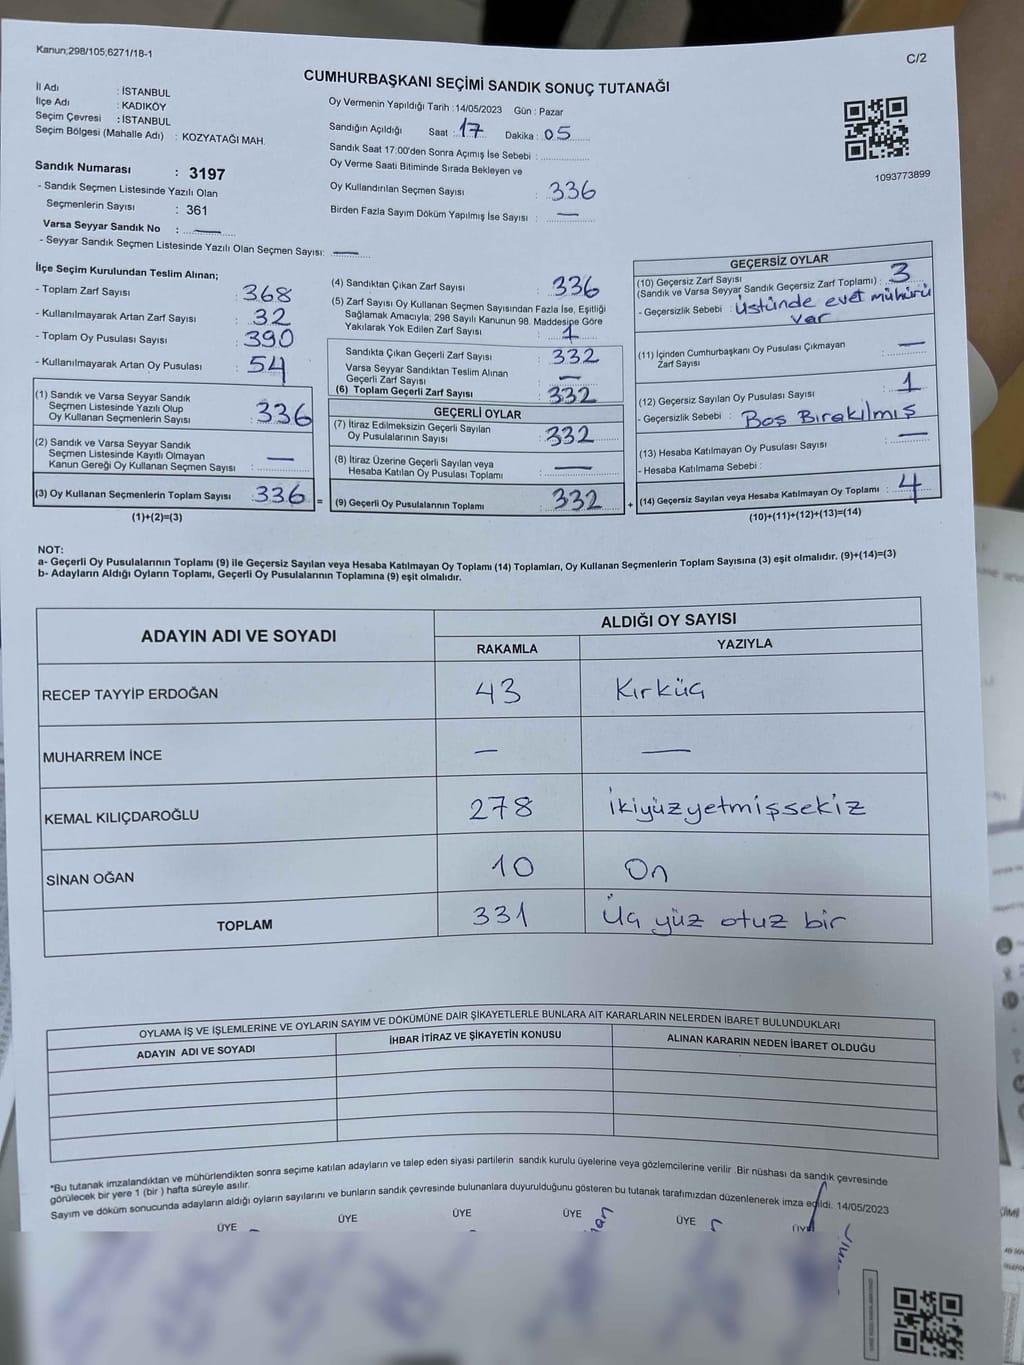 Kanun;298/105,6271/18-1
C/2
CUMHURBAŞKANI SEÇİMİ SANDIK SONUÇ TUTANAĞI
İl Adı : İSTANBUL
İlçe Adı : KADIKÖY
Seçim Çevresi : İSTANBUL
Seçim Bölgesi (Mahalle Adı) : KOZYATAĞI MAH.
Sandık Numarası : 3197
- Sandık Seçmen Listesinde Yazılı Olan
Seçmenlerin Sayısı : 361
Varsa Seyyar Sandık No : —
- Seyyar Sandık Seçmen Listesinde Yazılı Olan Seçmen Sayısı: —
Oy Vermenin Yapıldığı Tarih :14/05/2023 Gün : Pazar
Sandığın Açıldığı Saat : 17 Dakika : 05
Sandık Saat 17:00'den Sonra Açımış İse Sebebi :
Oy Verme Saati Bitiminde Sırada Bekleyen ve
Oy Kullandırılan Seçmen Sayısı : 336
Birden Fazla Sayım Döküm Yapılmış İse Sayısı : —
1093773899
İlçe Seçim Kurulundan Teslim Alınan;
- Toplam Zarf Sayısı : 368
- Kullanılmayarak Artan Zarf Sayısı : 32
- Toplam Oy Pusulası Sayısı : 390
- Kullanılmayarak Artan Oy Pusulası : 54
(1) Sandık ve Varsa Seyyar Sandık
Seçmen Listesinde Yazılı Olup
Oy Kullanan Seçmenlerin Sayısı : 336
(2) Sandık ve Varsa Seyyar Sandık
Seçmen Listesinde Kayıtlı Olmayan
Kanun Gereği Oy Kullanan Seçmen Sayısı : —
(3) Oy Kullanan Seçmenlerin Toplam Sayısı : 336 =
(1)+(2)=(3)
(4) Sandıktan Çıkan Zarf Sayısı : 336
(5) Zarf Sayısı Oy Kullanan Seçmen Sayısından Fazla İse, Eşitliği
Sağlamak Amacıyla; 298 Sayılı Kanunun 98. Maddesine Göre
Yakılarak Yok Edilen Zarf Sayısı : 1
Sandıkta Çıkan Geçerli Zarf Sayısı : 332
Varsa Seyyar Sandıktan Teslim Alınan
Geçerli Zarf Sayısı : —
(6) Toplam Geçerli Zarf Sayısı : 332
GEÇERLİ OYLAR
(7) İtiraz Edilmeksizin Geçerli Sayılan
Oy Pusulalarının Sayısı : 332
(8) İtiraz Üzerine Geçerli Sayılan veya
Hesaba Katılan Oy Pusulası Toplamı : —
(9) Geçerli Oy Pusulalarının Toplamı : 332 +
GEÇERSİZ OYLAR
(10) Geçersiz Zarf Sayısı
(Sandık ve Varsa Seyyar Sandık Geçersiz Zarf Toplamı) : 3
- Geçersizlik Sebebi : Üstünde evet mühürü
var
(11) İçinden Cumhurbaşkanı Oy Pusulası Çıkmayan
Zarf Sayısı : —
(12) Geçersiz Sayılan Oy Pusulası Sayısı : 1
- Geçersizlik Sebebi : Boş Bırakılmış
(13) Hesaba Katılmayan Oy Pusulası Sayısı : —
- Hesaba Katılmama Sebebi :
(14) Geçersiz Sayılan veya Hesaba Katılmayan Oy Toplamı : 4
(10)+(11)+(12)+(13)=(14)
NOT:
a- Geçerli Oy Pusulalarının Toplamı (9) ile Geçersiz Sayılan veya Hesaba Katılmayan Oy Toplamı (14) Toplamları, Oy Kullanan Seçmenlerin Toplam Sayısına (3) eşit olmalıdır. (9)+(14)=(3)
b- Adayların Aldığı Oyların Toplamı, Geçerli Oy Pusulalarının Toplamına (9) eşit olmalıdır.
ADAYIN ADI VE SOYADI
ALDIĞI OY SAYISI
RAKAMLA YAZIYLA
RECEP TAYYİP ERDOĞAN 43 Kırküç
MUHARREM İNCE — —
KEMAL KILIÇDAROĞLU 278 İkiyüzyetmişsekiz
SİNAN OĞAN 10 On
TOPLAM 331 Üç yüz otuz bir
OYLAMA İŞ VE İŞLEMLERİNE VE OYLARIN SAYIM VE DÖKÜMÜNE DAİR ŞİKAYETLERLE BUNLARA AİT KARARLARIN NELERDEN İBARET BULUNDUKLARI
ADAYIN ADI VE SOYADI İHBAR İTİRAZ VE ŞİKAYETİN KONUSU ALINAN KARARIN NEDEN İBARET OLDUĞU
*Bu tutanak imzalandıktan ve mühürlendikten sonra seçime katılan adayların ve talep eden siyasi partilerin sandık kurulu üyelerine veya gözlemcilerine verilir .Bir nüshası da sandık çevresinde
görülecek bir yere 1 (bir ) hafta süreyle asılır.
Sayım ve döküm sonucunda adayların aldığı oyların sayılarını ve bunların sandık çevresinde bulunanlara duyurulduğunu gösteren bu tutanak tarafımızdan düzenlenerek imza edildi. 14/05/2023
ÜYE ÜYE ÜYE ÜYE ÜYE ÜYE